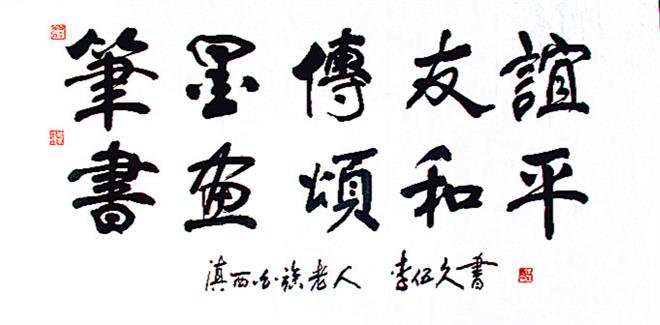 筆墨傳友誼
書画頌和平
滇西白族老人 李伍久書